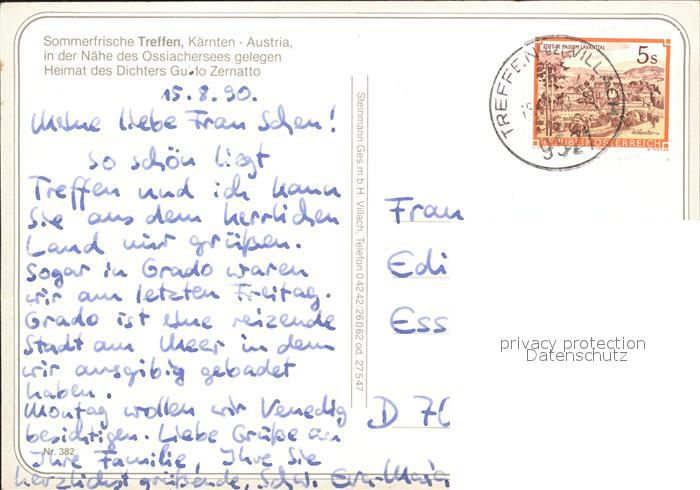 Sommerfrische Treffen, Kärnten - Austria,
in der Nähe des Ossiachersees gelegen
Heimat des Dichters Guido Zernatto
15.8.90.
Meine liebe Frau Schen!
So schön liegt
Treffen und ich kann
Sie aus dem herrlichen
Land nur grüßen.
Sogar in Grado waren
wir am letzten Freitag.
Grado ist eine reizende
Stadt am Meer in dem
wir ausgibig gebadet
haben.
Montag wollen wir Venedig
besichtigen. Liebe Grüße an
Nr. 382
Ihre Familie, Ihre Sie
herzlichst grüßende, Schw. Eva-Maria
Steinmann Ges.m.b.H. Villach, Telefon 04242/26062 od. 27547
STIFT ST. PAUL IM LAVANTTAL
5 S
REPUBLIK ÖSTERREICH
TREFFEN BEI VILLACH
9521
Frau
Edi
Ess
D 70
privacy protection
Datenschutz